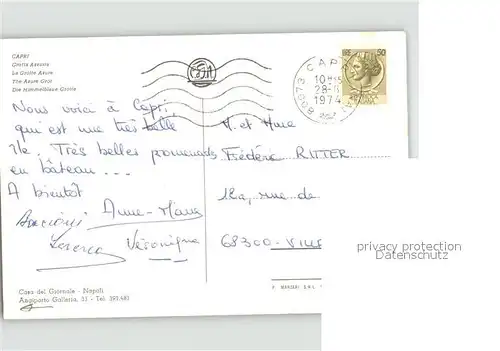 CAPRI
Grotta Azzurra
La Grotte Azure
The Azure Grot
Die himmelblaue Grotte
Nous voici à Capri
qui est une très belle
île. Très belles promenades
en bateau...
A bientôt
Anne-Marie
Lorenzo Véronique
LIRE 50
80073 CAPRI
28-
1974
M. et Mme
Frédéric RITTER
12a, rue de
68300-
privacy protection
Datenschutz
Casa del Giornale - Napoli
Angiporto Galleria, 33 - Tel. 391.481